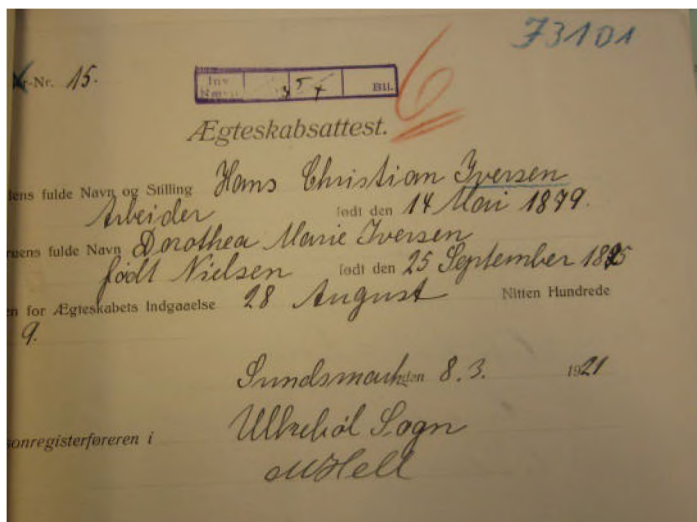 73101
-Nr. 15.
Inv 5 7 Bil.
Ægteskabsattest.
dens fulde Navn og Stilling Hans Christian Iversen
Arbeider født den 14 Mai 1879.
ruens fulde Navn Dorothea Marie Iversen
født Nielsen født den 25 September 18
n for Ægteskabets Indgaaelse 28 August Nitten Hundrede
9.
Sundsmark den 8.3. 1921
sonregisterføreren i Ulkebøl Sogn